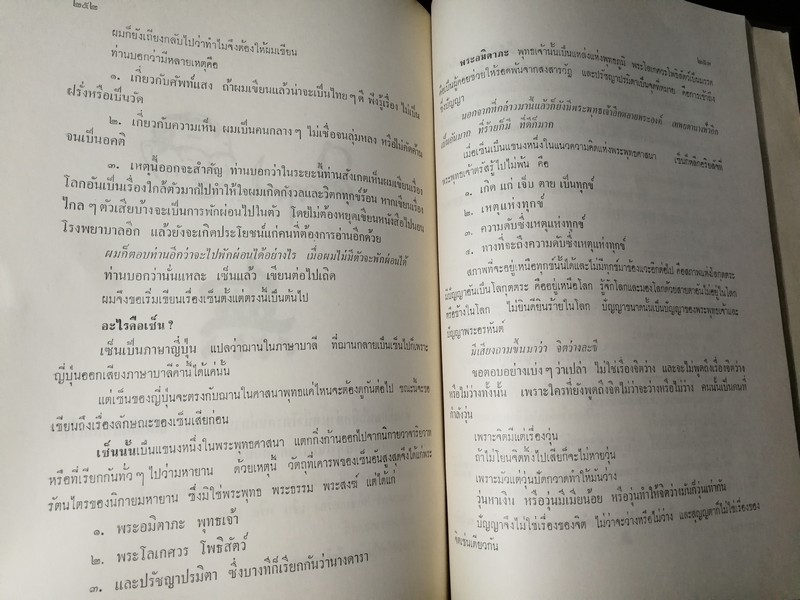 ๒๕๒
ผมก็ยังเถียงกลับไปว่าทำไมจึงต้องให้ผมเขียน
ท่านบอกว่ามีหลายเหตุคือ
๑. เกี่ยวกับศัพท์แสง ถ้าผมเขียนแล้วน่าจะเป็นไทย ๆ ดี ฟังรู้เรื่อง ไม่เป็น
ฝรั่งหรือเป็นวัด
๒. เกี่ยวกับความเห็น ผมเป็นคนกลาง ๆ ไม่เชื่อจนลุ่มหลง หรือไม่คัดค้าน
จนเป็นอคติ
๓. เหตุนี้ออกจะสำคัญ ท่านบอกว่าในระยะนี้ท่านสังเกตเห็นผมเขียนเรื่อง
โลกอันเป็นเรื่องใกล้ตัวมากไปทำให้ใจผมเกิดกังวลและวิตกทุกข์ร้อน หากเขียนเรื่อง
ไกล ๆ ตัวเสียบ้างจะเป็นการพักผ่อนไปในตัว โดยไม่ต้องหยุดเขียนหนังสือไปนอน
โรงพยาบาลอีก แล้วยังจะเกิดประโยชน์แก่คนที่ต้องการอ่านอีกด้วย
ผมก็ตอบท่านอีกว่าจะไปพักผ่อนได้อย่างไร เมื่อผมไม่มีตัวจะพักผ่อนได้
ท่านบอกว่านั่นแหละ เซ็นแล้ว เขียนต่อไปเถิด
ผมจึงขอเริ่มเขียนเรื่องเซ็นตั้งแต่ตรงนี้เป็นต้นไป
อะไรคือเซ็น ?
เซ็นเป็นภาษาญี่ปุ่น แปลว่าฌานในภาษาบาลี ที่ฌานกลายเป็นเซ็นไปก็เพราะ
ญี่ปุ่นออกเสียงภาษาบาลีคำนี้ได้แค่นั้น
แต่เซ็นของญี่ปุ่นจะตรงกับฌานในศาสนาพุทธแค่ไหนจะต้องดูกันต่อไป ขณะนี้จะขอ
เขียนถึงเรื่องลักษณะของเซ็นเสียก่อน
เซ็นนั้นเป็นแขนงหนึ่งในพระพุทธศาสนา แตกกิ่งก้านออกไปจากนิกายอาจาริยวาท
หรือที่เรียกกันทั่ว ๆ ไปว่ามหายาน ด้วยเหตุนี้ วัตถุที่เคารพของเซ็นอันสูงสุดจึงได้แก่พระ
รัตนไตรของนิกายมหายาน ซึ่งมิใช่พระพุทธ พระธรรม พระสงฆ์ แต่ได้แก่
๑. พระอมิตาภะ พุทธเจ้า
๒. พระโลเกศวร โพธิสัตว์
๓. และปรัชญาปรมิตา ซึ่งบางทีก็เรียกกันว่านางดารา
๒๕๓
พระอมิตาภะ พุทธเจ้านั้นเป็นแหล่งแห่งพุทธภูมิ พระโลเกศวรโพธิสัตว์เป็นมรรค
คือเป็นผู้คอยช่วยให้รอดพ้นจากสงสารวัฏ และปรัชญาปรมิตาเป็นจุดที่หมาย คือการเข้าถึง
ซึ่งปัญญา
นอกจากที่กล่าวมานี้แล้วก็ยังมีพระพุทธเจ้าอีกหลายพระองค์
เป็นอันมาก ที่ร้ายก็มี ที่ดีก็มาก
เมื่อเซ็นเป็นแขนงหนึ่งในแนวความคิดแห่งพระพุทธศาสนา เซ็นก็หลีกอริยสัจที่
พระพุทธเจ้าตรัสรู้ไปไม่พ้น คือ
๑. เกิด แก่ เจ็บ ตาย เป็นทุกข์
๒. เหตุแห่งทุกข์
๓. ความดับซึ่งเหตุแห่งทุกข์
๔. ทางที่จะถึงความดับซึ่งเหตุแห่งทุกข์
สภาพที่จะอยู่เหนือทุกข์นั้นได้และไม่มีทุกข์มาข้องแวะอีกต่อไป คือสภาพแห่งโลกุตตระ
มีปัญญาอันเป็นโลกุตตระ คืออยู่เหนือโลก รู้จักโลกและมองโลกด้วยสายตาอันไม่อยู่ในโลก
หรือร้างในโลก ไม่ยินดียินร้ายในโลก ปัญญาขนาดนั้นเป็นปัญญาของพระพุทธเจ้าและ
ปัญญาพระอรหันต์
มีเสียงถามขึ้นมาว่า จิตว่างอะซี
ขอตอบอย่างเบ่ง ๆ ว่าเปล่า ไม่ใช่เรื่องจิตว่าง และจะไม่พูดถึงเรื่องจิตว่าง
หรือไม่ว่างทั้งนั้น เพราะใครที่ยังพูดถึงจิตไม่ว่าจะว่างหรือไม่ว่าง คนนั้นเป็นคนที่
กำลังวุ่น
เพราะจิตมีแต่เรื่องวุ่น
ถ้าไม่โยนจิตทิ้งไปเสียก็จะไม่หายวุ่น
เพราะมัวแต่วุ่นปัดกวาดทำให้มันว่าง
วุ่นหาเงิน หรือวุ่นมีเมียน้อย หรือวุ่นทำให้จิตว่างมันก็วุ่นเท่ากัน
ปัญญาจึงไม่ใช่เรื่องของจิต ไม่ว่าจะว่างหรือไม่ว่าง และสุญญตาก็ไม่ใช่เรื่องของ
จิตเช่นเดียวกัน